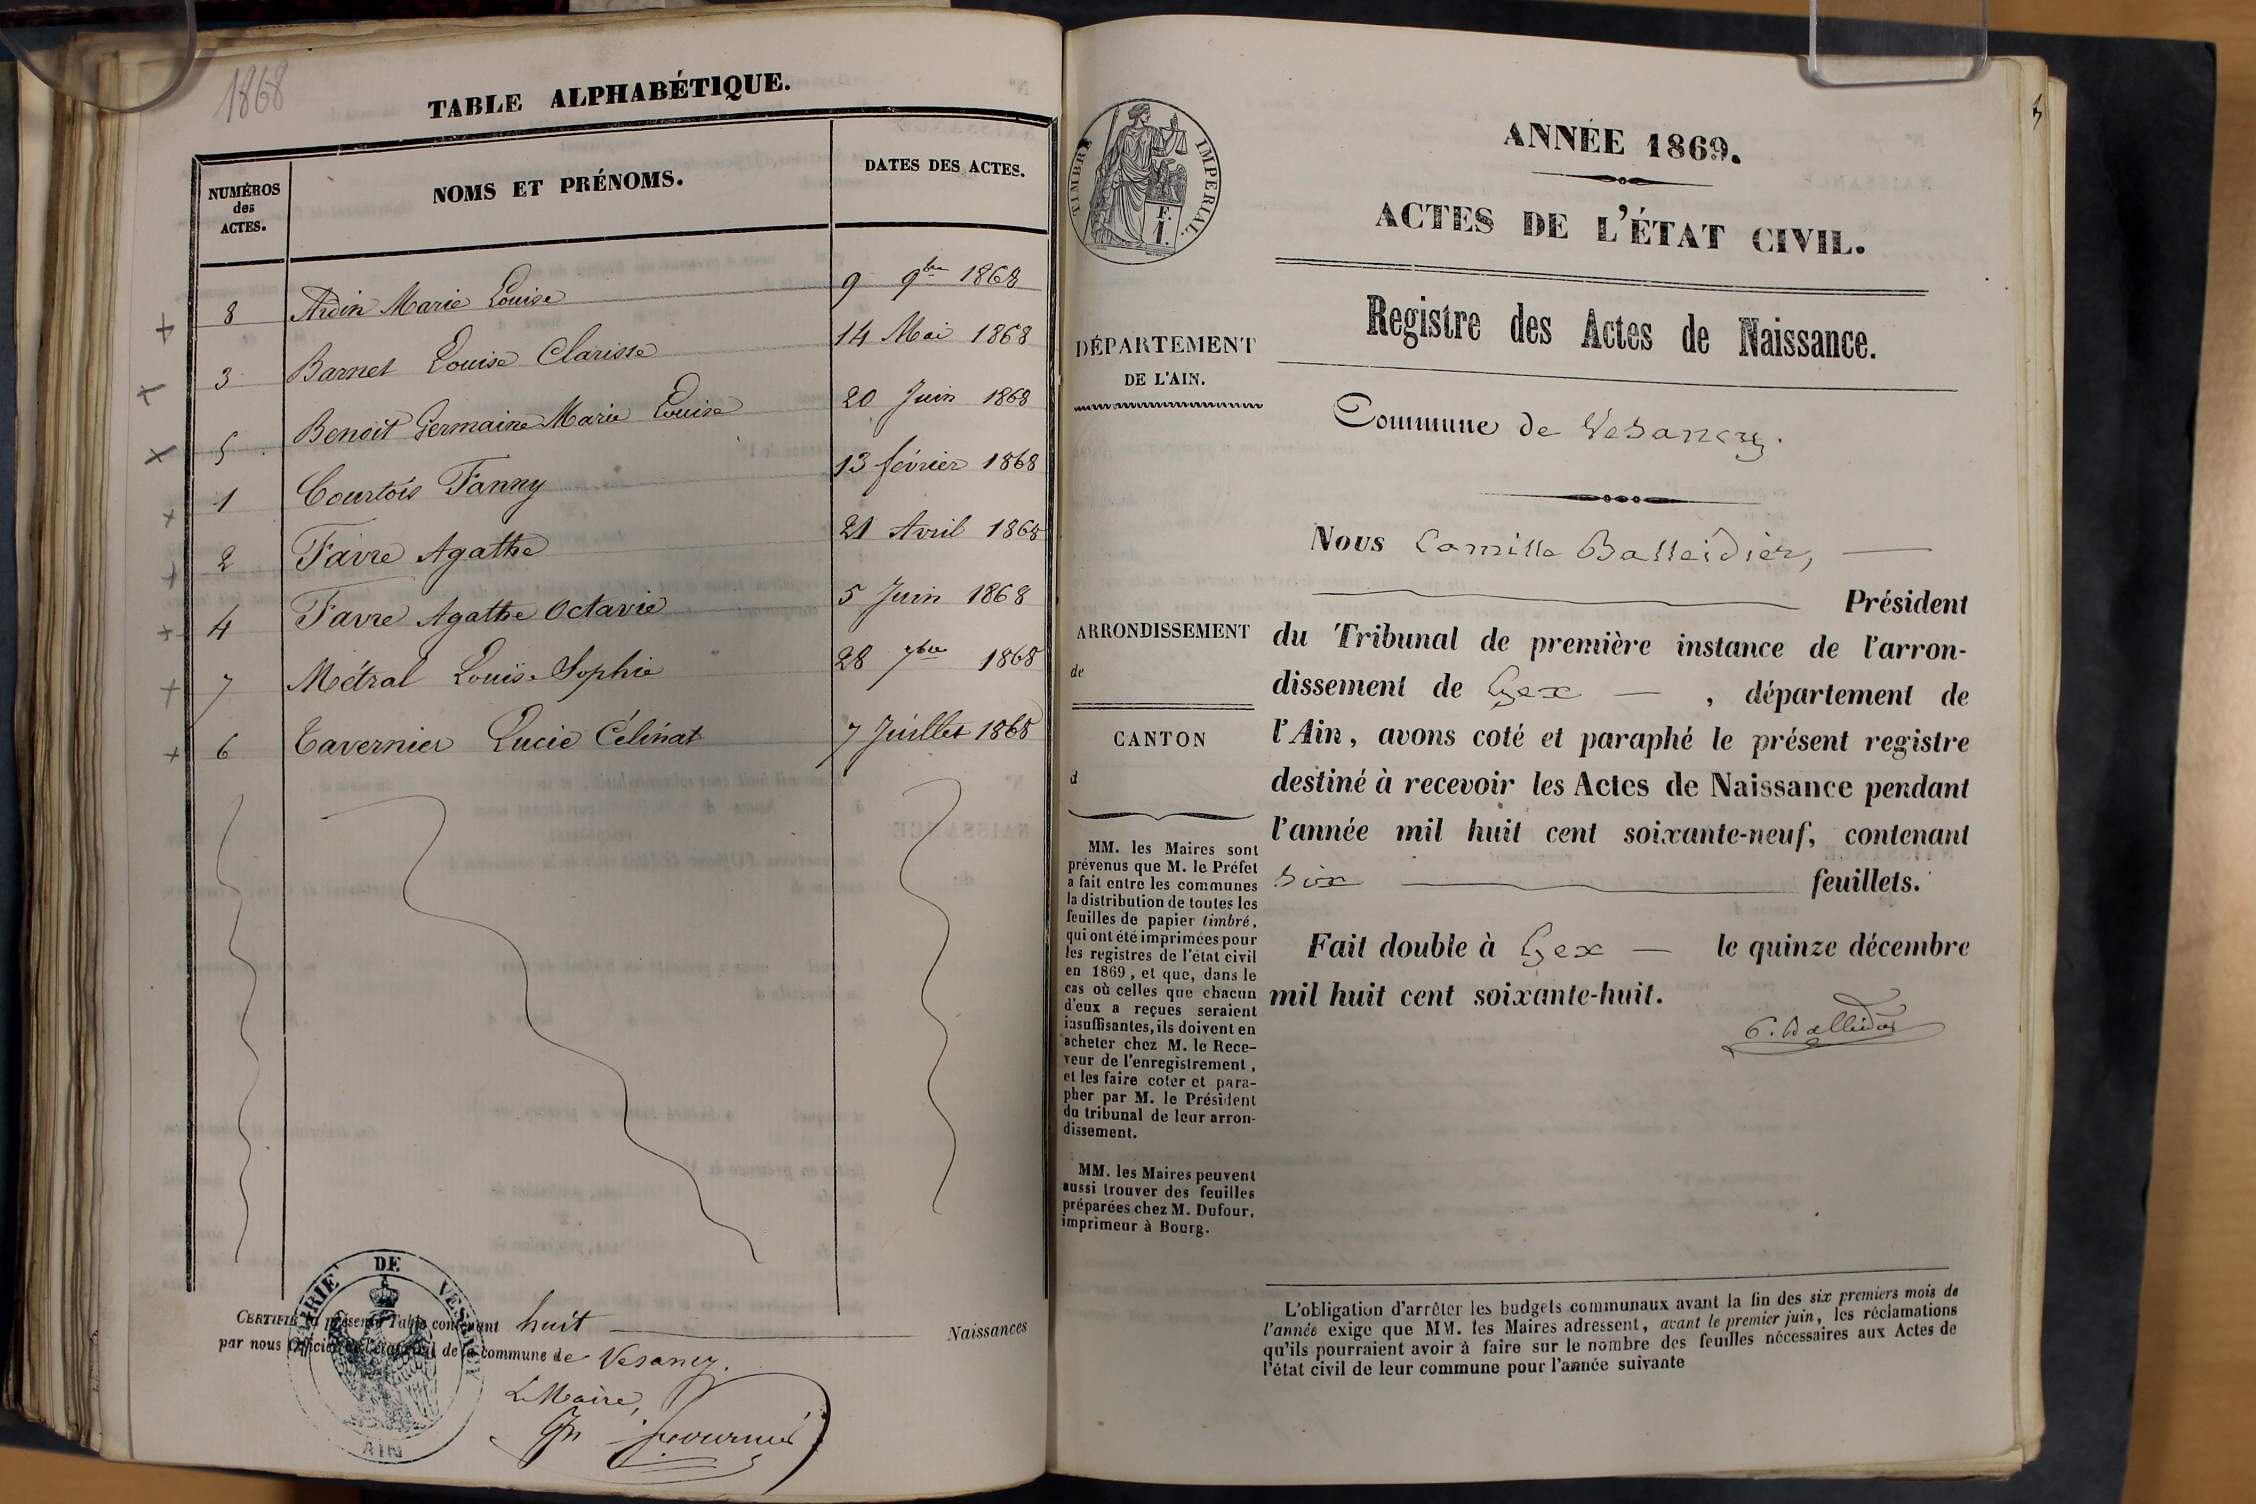 1868
TABLE ALPHABÉTIQUE.
NUMÉROS
des
ACTES.
NOMS ET PRÉNOMS.
DATES DES ACTES.
8 Ardin Marie Louise 9 9bre 1868
3 Barnet Louise Clarisse 14 Mai 1868
5 Benoit Germaine Marie Louise 20 Juin 1868
1 Courtois Fanny 13 février 1868
2 Favre Agathe 21 Avril 1868
4 Favre Agathe Octavie 5 Juin 1868
7 Métral Louise Sophie 28 7bre 1868
6 Tavernier Lucie Célinat 7 Juillet 1868
CERTIFIÉ la présente Table contenant huit Naissances
par nous Officier de l'état civil de la commune de Vesancy.
Le Maire,
MAIRIE DE VESANCY
AIN
TIMBRE IMPERIAL.
F.
1.
ANNÉE 1869.
ACTES DE L'ÉTAT CIVIL.
Registre des Actes de Naissance.
DÉPARTEMENT
DE L'AIN.
Commune de Vesancy.
ARRONDISSEMENT
de
CANTON
d
MM. les Maires sont
prévenus que M. le Préfet
a fait entre les communes
la distribution de toutes les
feuilles de papier timbré,
qui ont été imprimées pour
les registres de l'état civil
en 1869, et que, dans le
cas où celles que chacun
d'eux a reçues seraient
insuffisantes, ils doivent en
acheter chez M. le Rece-
veur de l'enregistrement,
et les faire coter et para-
pher par M. le Président
du tribunal de leur arron-
dissement.
MM. les Maires peuvent
aussi trouver des feuilles
préparées chez M. Dufour,
imprimeur à Bourg.
Nous Camille Balleidier,
Président
du Tribunal de première instance de l'arron-
dissement de Gex, département de
l'Ain, avons coté et paraphé le présent registre
destiné à recevoir les Actes de Naissance pendant
l'année mil huit cent soixante-neuf, contenant
six feuillets.
Fait double à Gex le quinze décembre
mil huit cent soixante-huit.
C. Balleidier
L'obligation d'arrêter les budgets communaux avant la fin des six premiers mois de
l'année exige que MM. les Maires adressent, avant le premier juin, les réclamations
qu'ils pourraient avoir à faire sur le nombre des feuilles nécessaires aux Actes de
l'état civil de leur commune pour l'année suivante